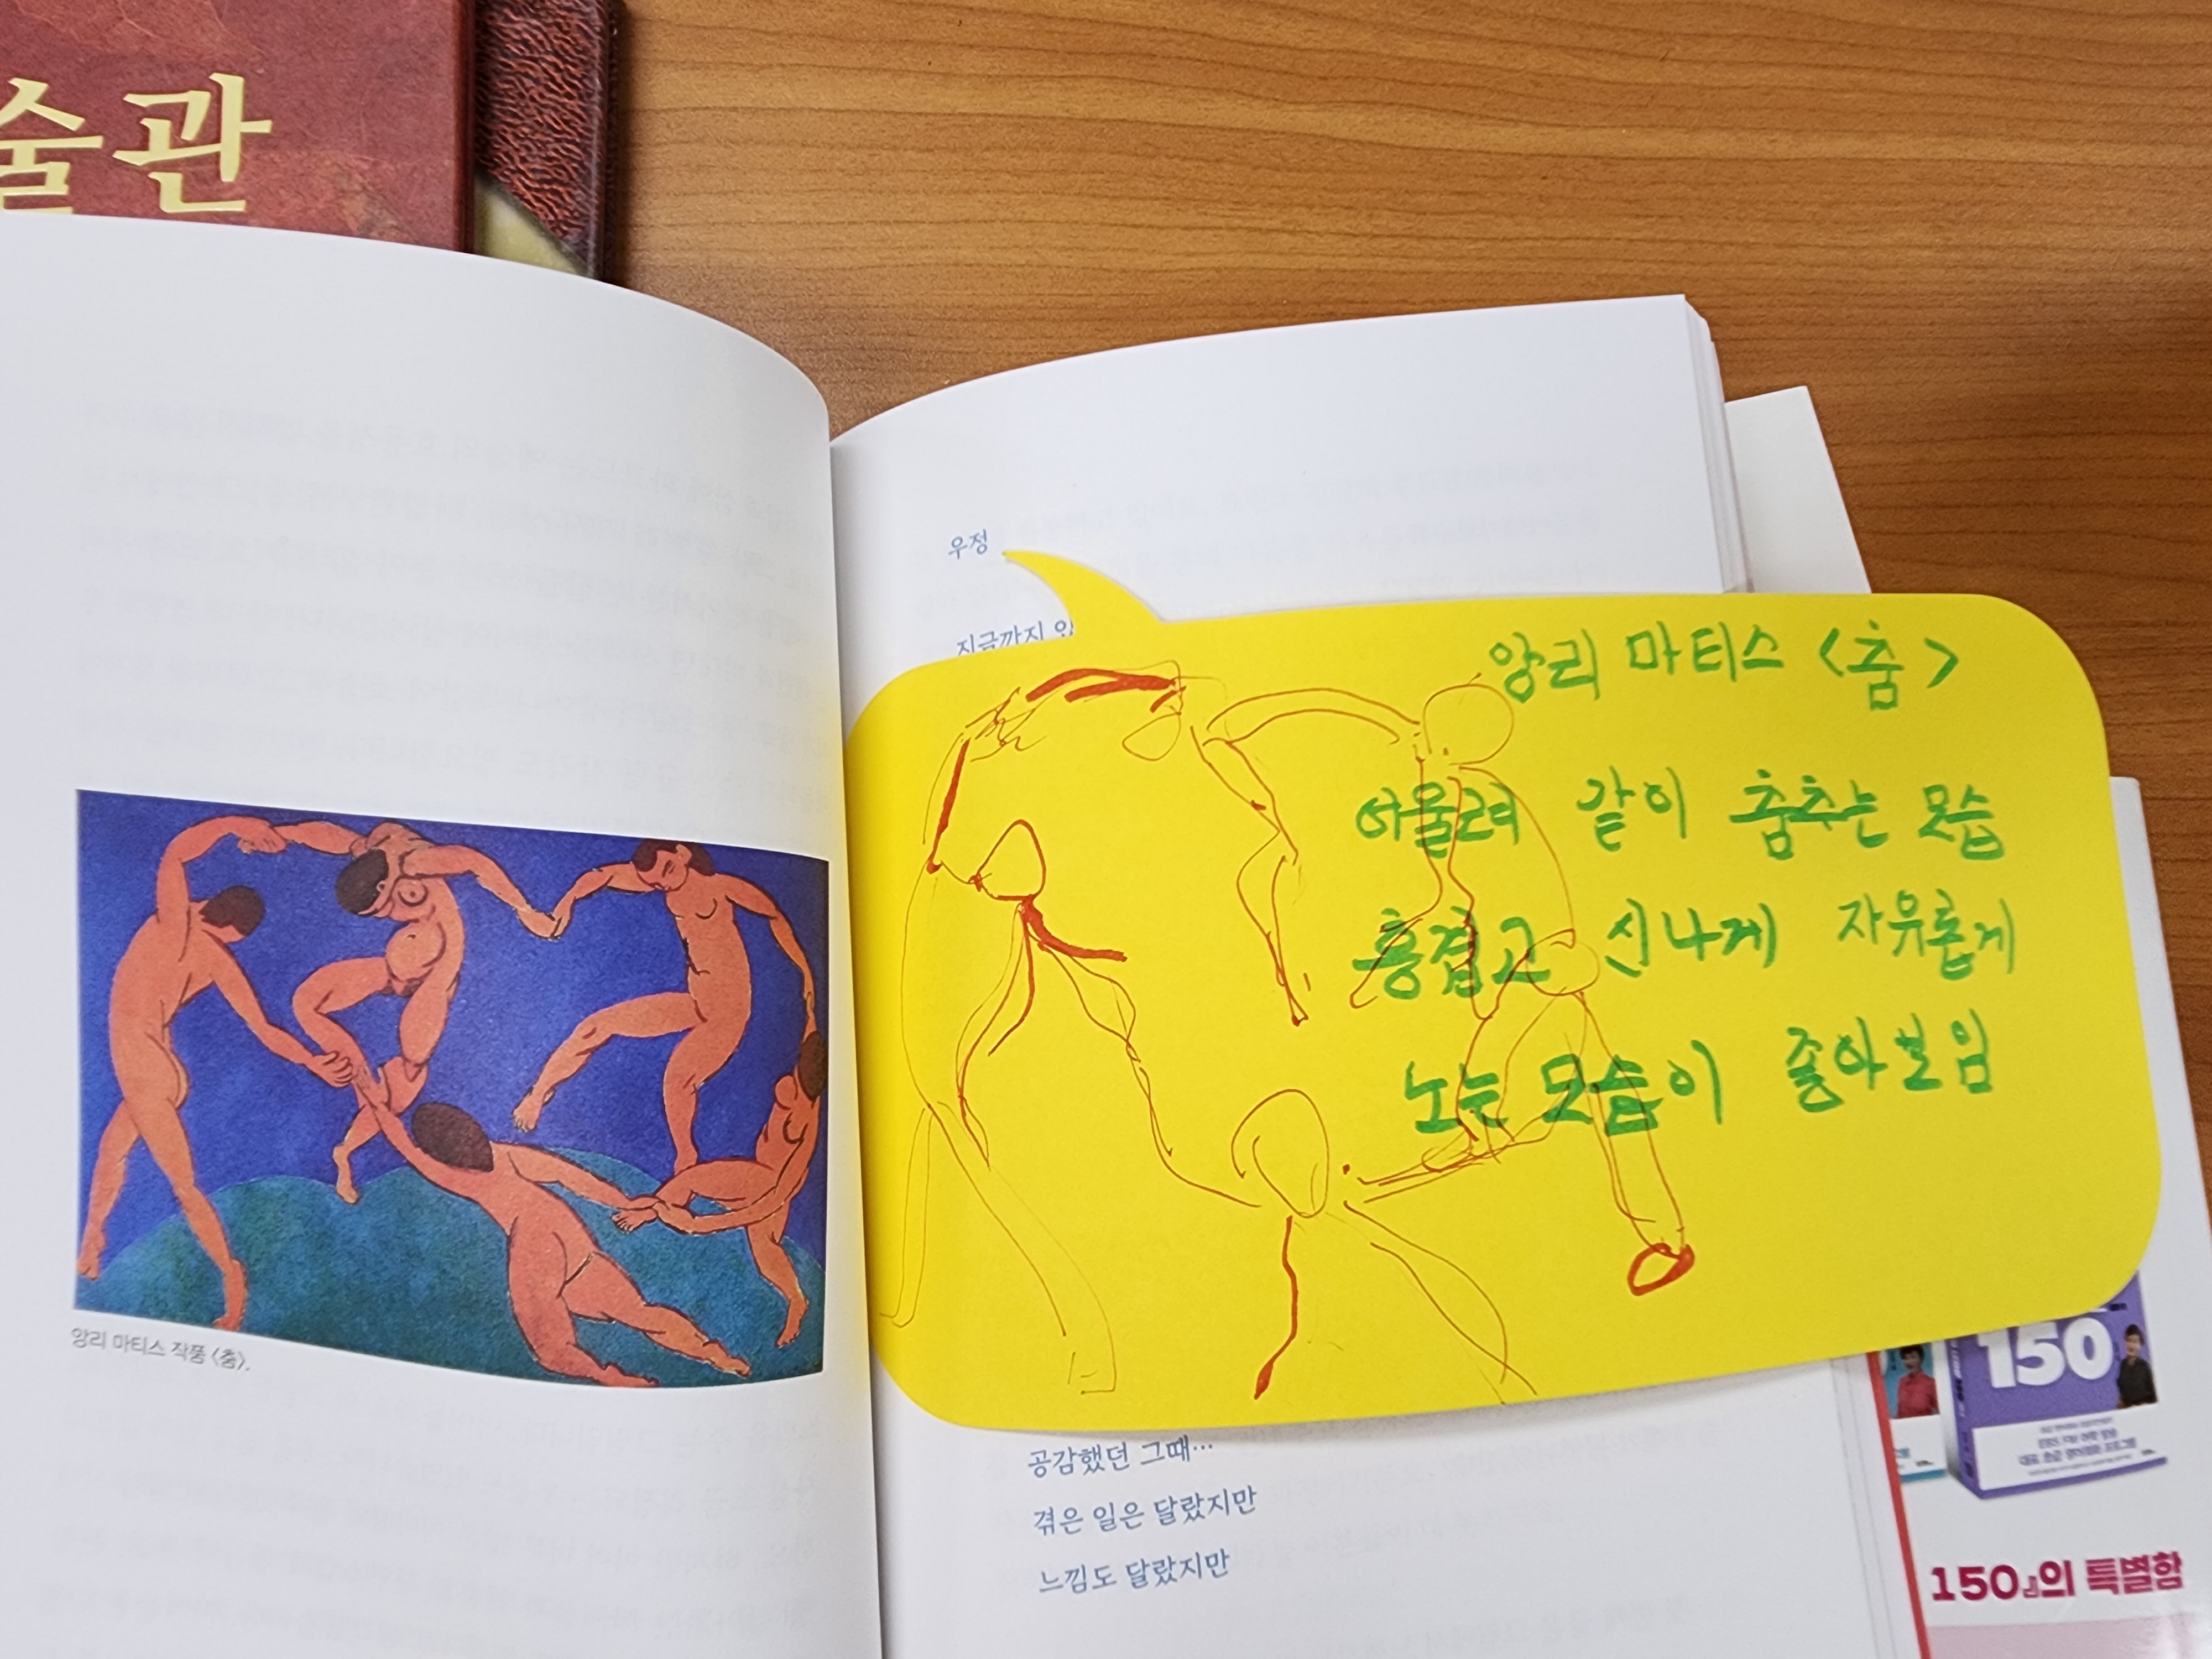 술관
앙리 마티스 작품 <춤>.
우정
지금까지
앙리 마티스 <춤>
어울려 같이 춤추는 모습
흥겹고 신나게 자유롭게
노는 모습이 좋아보임
공감했던 그때…
겪은 일은 달랐지만
느낌도 달랐지만
150
150』의 특별함